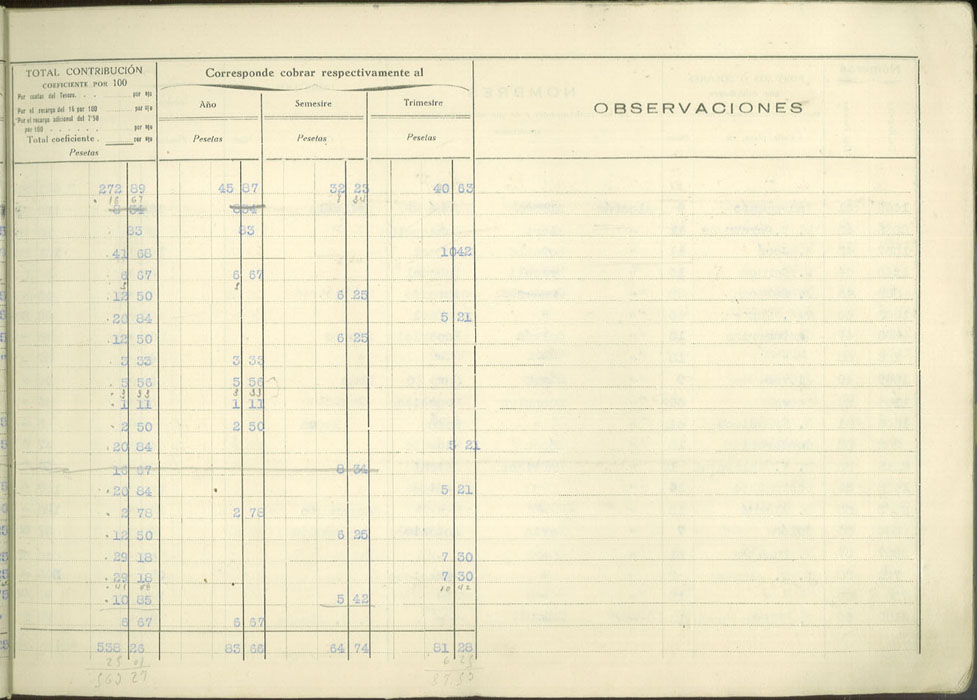 TOTAL CONTRIBUCIÓN
COEFICIENTE POR 100
Por cuotas del Tesoro. . . por %
Por el recargo del 16 por 100 por %
Por el recargo adicional del 7'50
por 100 . . . . . . por %
Total coeficiente . por %
Pesetas
Corresponde cobrar respectivamente al
Año Semestre Trimestre
Pesetas Pesetas Pesetas
OBSERVACIONES
272 89 45 87 32 23 40 63
16 67 8 34
8 34 834
83 83
41 68 1042
6 67 6 67
12 50 6 25
20 84 5 21
12 50 6 25
3 33 3 33
5 56 5 56
3 33 3 33
1 11 1 11
2 50 2 50
20 84 5 21
16 67 8 34
20 84 5 21
2 78 2 78
12 50 6 25
29 18 7 30
29 18 7 30
41 68 10 42
10 85 5 42
6 67 6 67
538 26 83 66 64 74 81 28